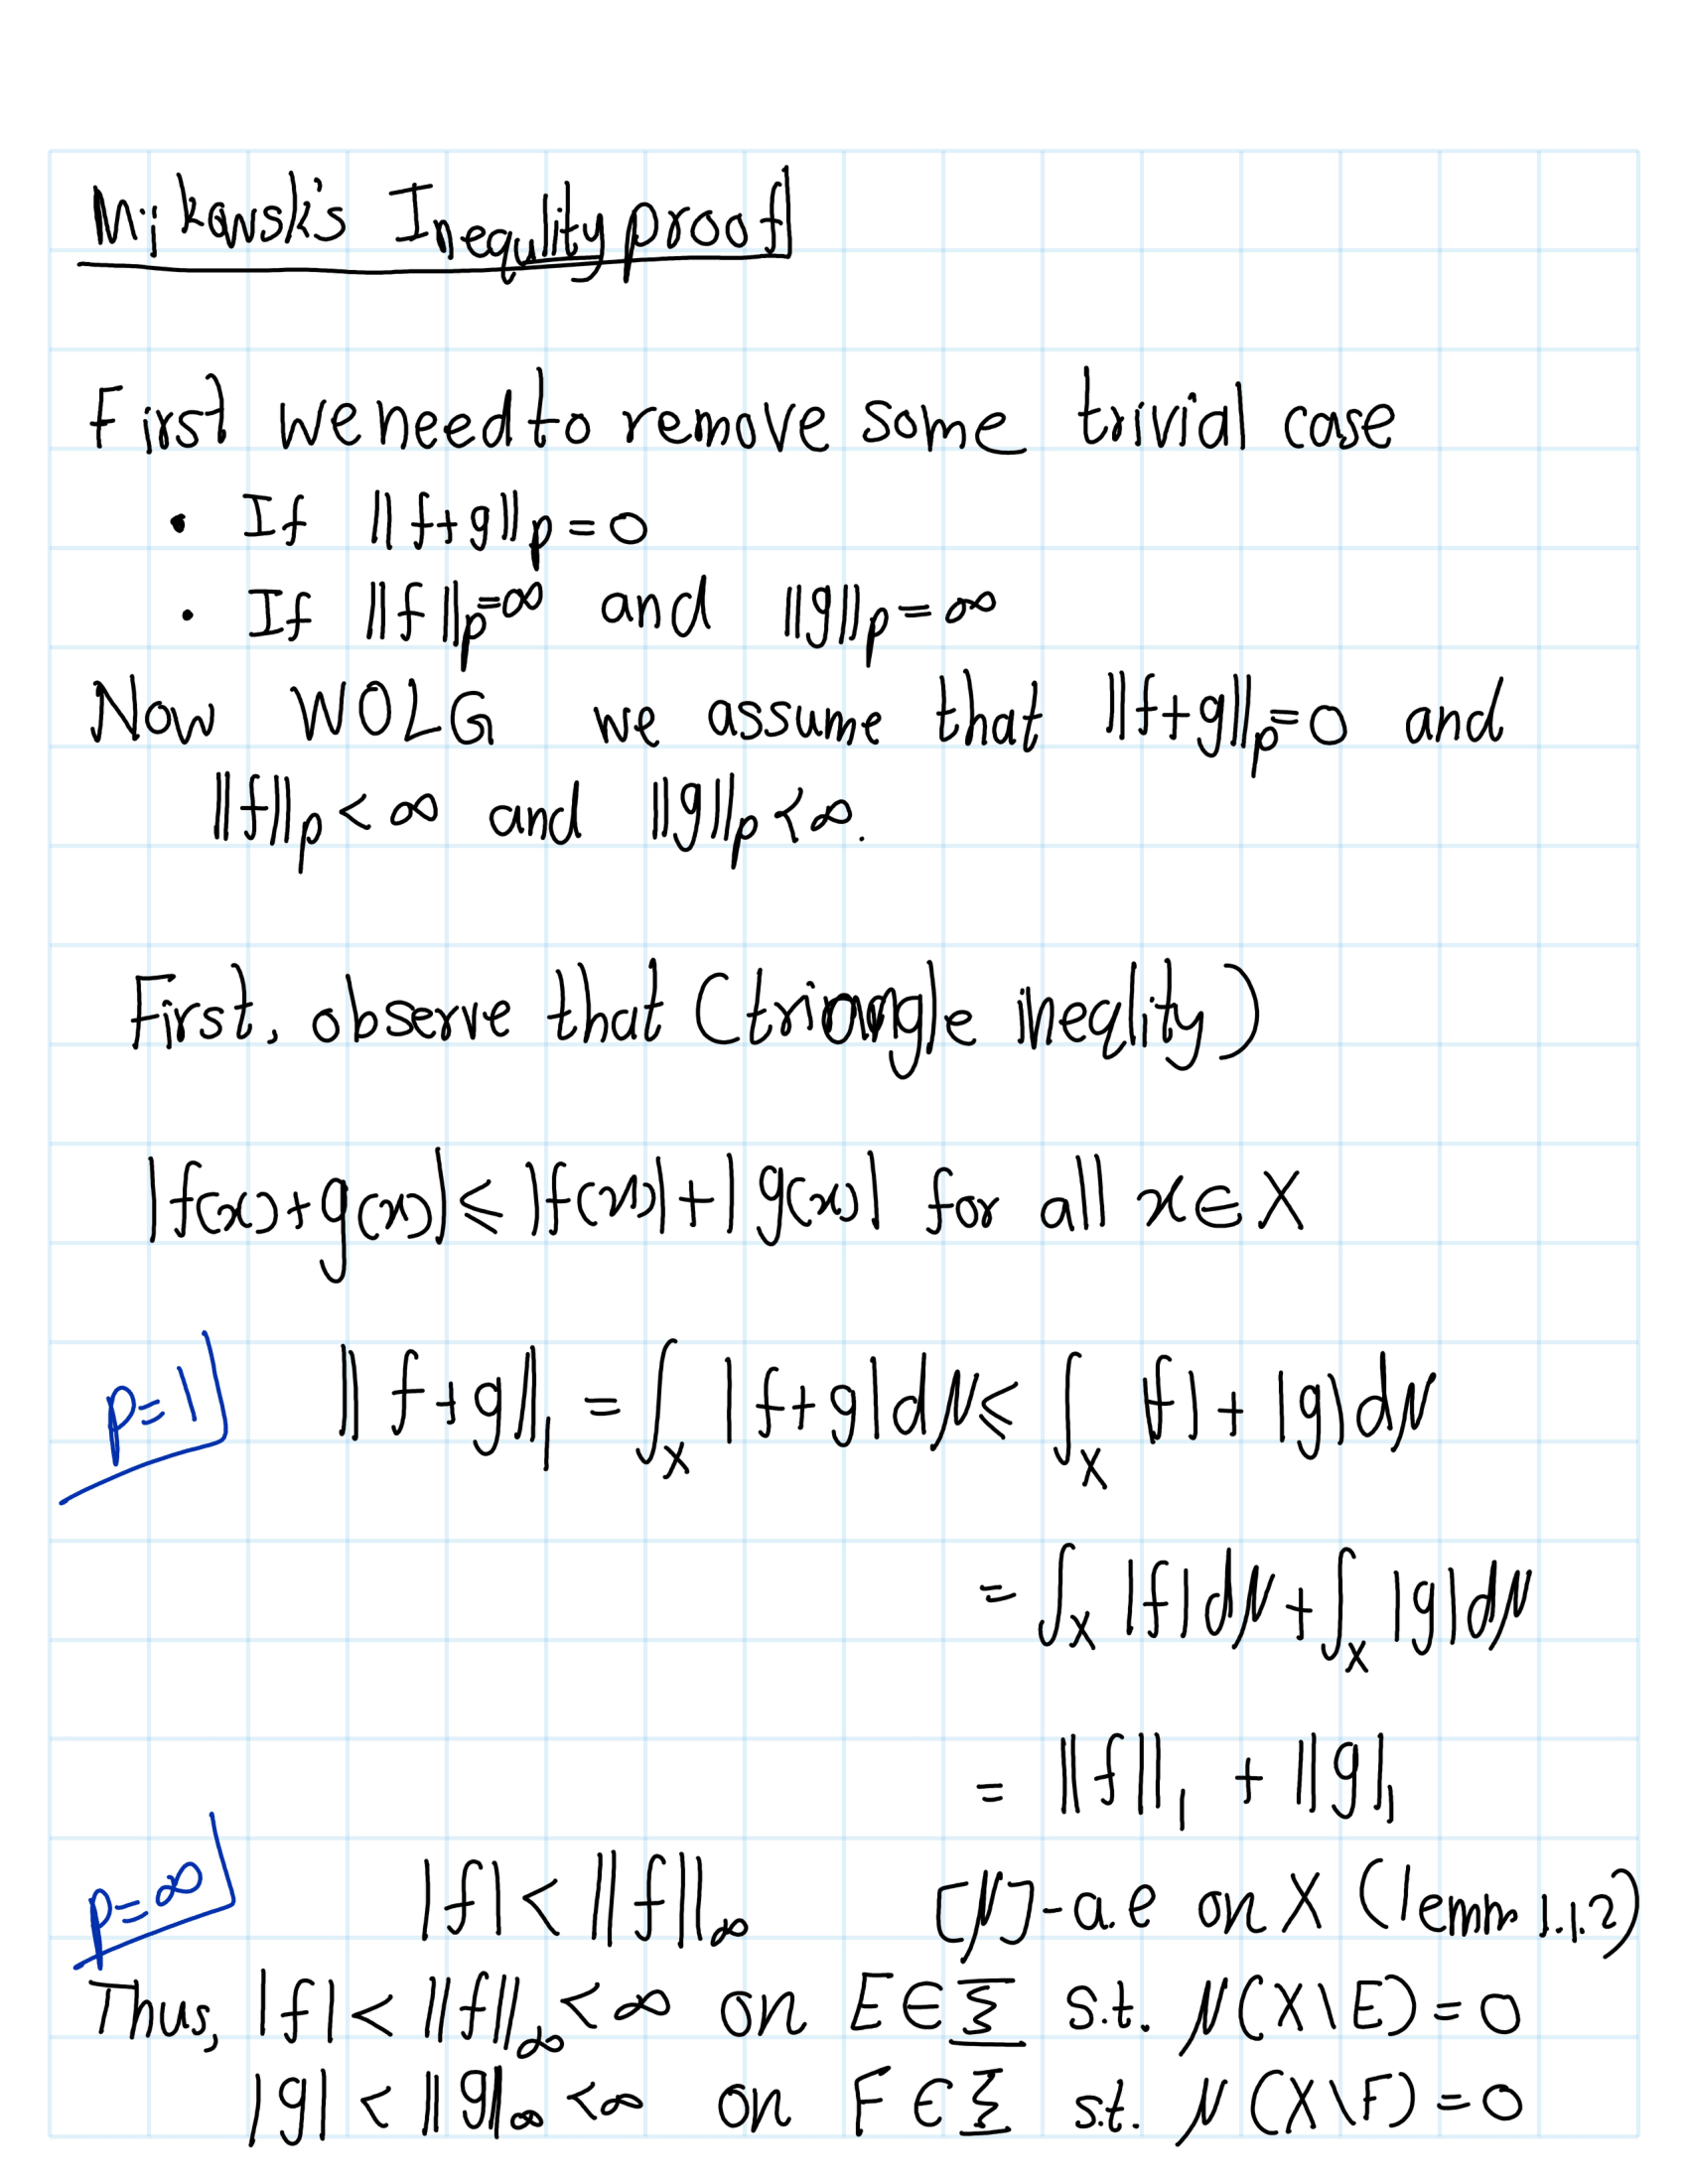 Mikowsk's Inequlity proof
First we need to remove some trivial case
• If ||f+g||p=0
• If ||f||p=∞ and ||g||p=∞
Now WOLG we assume that ||f+g||p=0 and
||f||p<∞ and ||g||p<∞.
First, observe that (triangle ineqlity)
|f(x)+g(x)|≤|f(x)|+|g(x)| for all x∈X
p=1 ||f+g||₁ = ∫x |f+g|dμ ≤ ∫x |f|+|g|dμ
= ∫x |f|dμ + ∫x |g|dμ
= ||f||₁ + ||g||₁
p=∞ |f| < ||f||∞ [μ]-a.e on X (lemm 1.1.2)
Thus, |f| < ||f||∞ < ∞ on E∈Σ s.t. μ(X\E)=0
|g| < ||g||∞ < ∞ on F∈Σ s.t. μ(X\F)=0